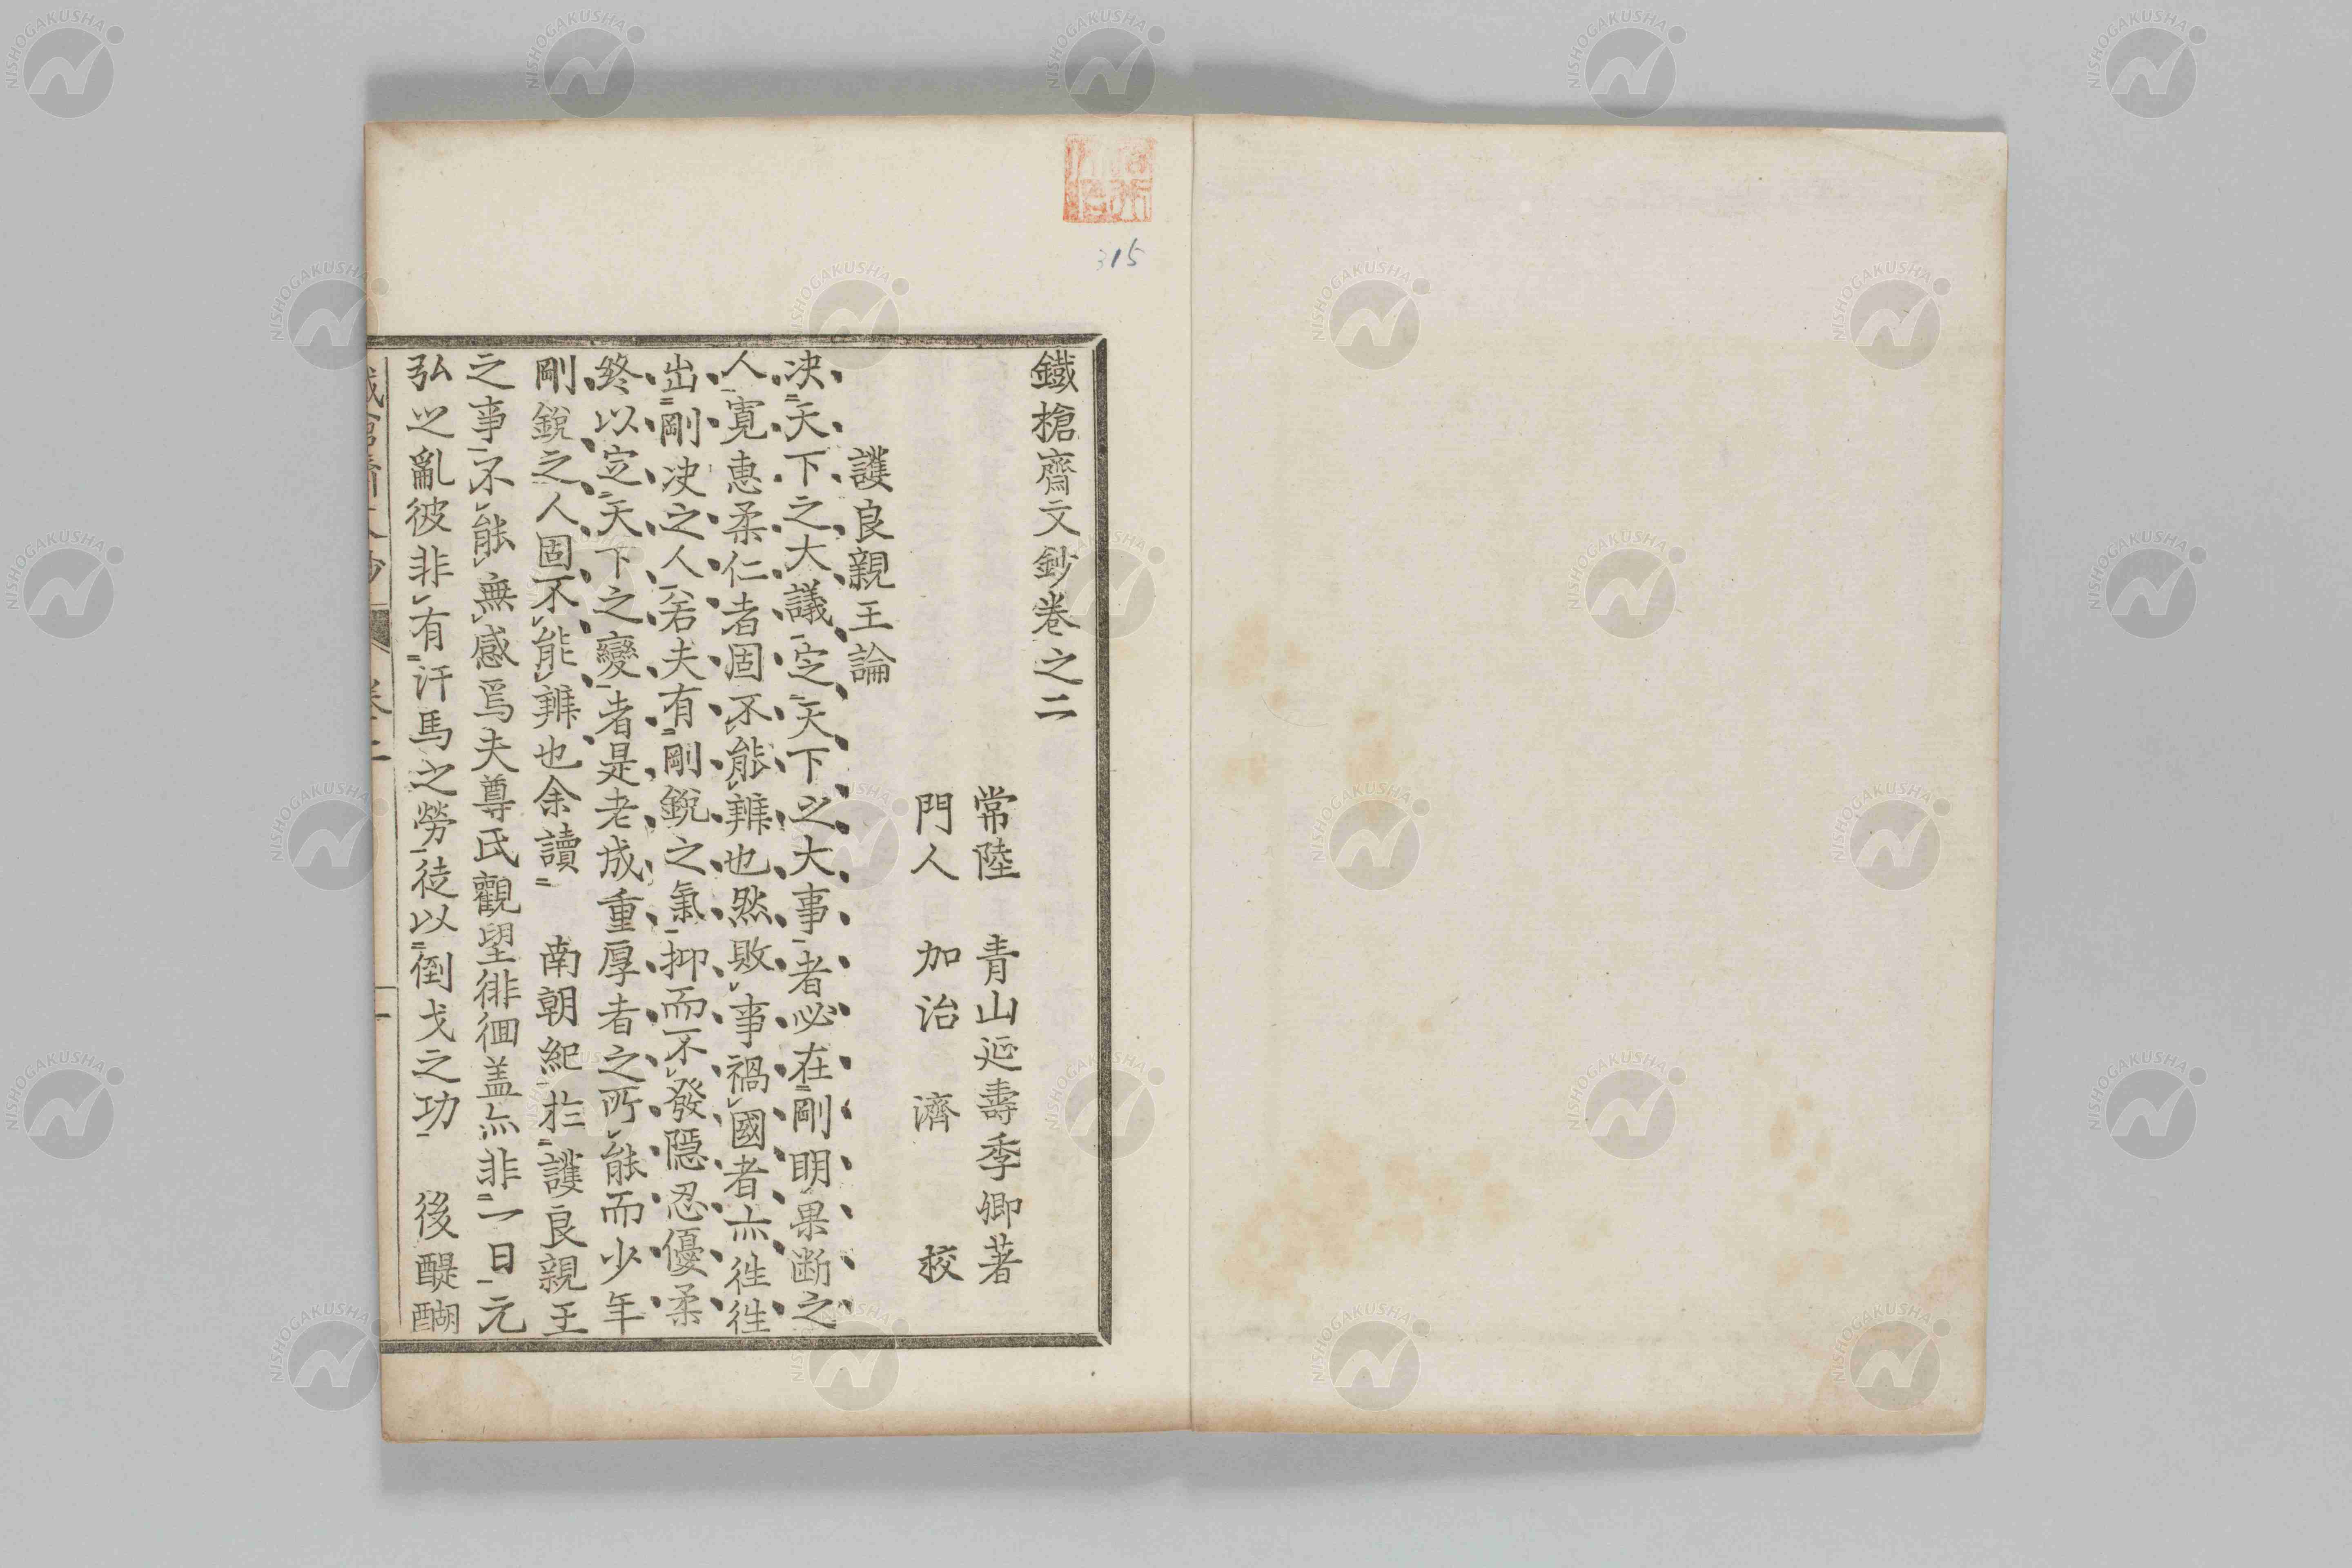 鐵槍齋文鈔卷之二
常陸 青山延壽季卿著
門人 加治 濟 校
護良親王論
决天下之大議定天下之大事者必在剛明果断之
人寛惠柔仁者固不能辨也然敗事禍國者亦往往
出剛决之人若夫有剛銳之氣抑而不發隱忍優柔
終以定天下之變者是老成重厚者之所能而少年
剛銳之人固不能辨也余讀 南朝紀於護良親王
之事不能無感焉夫尊氏觀望徘徊盖亦非一日元
弘之亂彼非有汗馬之勞徒以倒戈之功 後醍醐
315
NISHOGAKUSHA